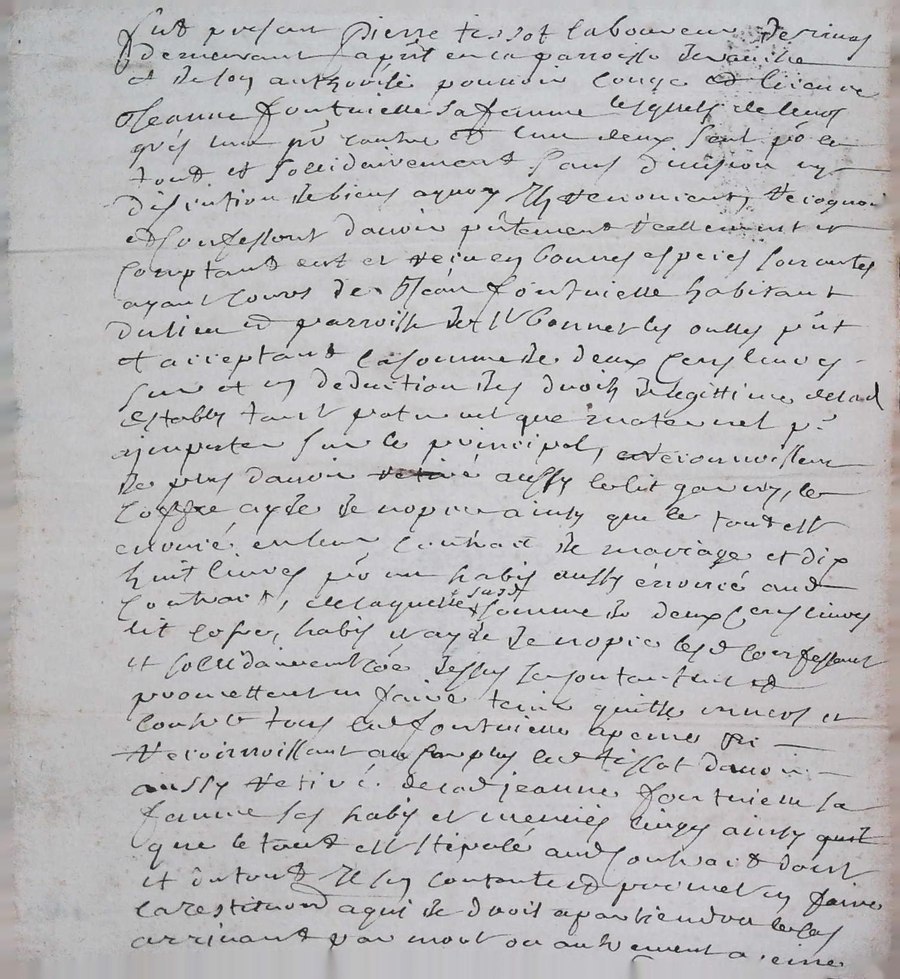 fut present pierre tissot laboureur de
demeurant april en la parroisse de
et de son authorité pouvoir congé et licence
Jeanne fontvielle sa femme lesquels de leurs
grés l'un pr l'autre et l'un deux seul po le
tout et sollidairement sans division ny
discution de biens a quoy Ils renoncient, recognoi
et confessont davoir pntement reellement et
comptant eut et receu en bonnes especes
ayant cours de Jean fontvielle habitant
du lieu et parroisse de St bonnet les oulles pnt
et acceptant la somme de deux cens livres
sur et en deduction des droits de legittime de lad
establis tant paternel que maternel pr
imputer sur le principal, reconnoissent
de plus davoir retiré aussy le lit garny, le
coffre ayde de nopce ainsy que le tout est
enoncé en leur contrait de mariage et dix
huit livres pr un habis aussy énoncé aud
contrait, de laquelle susd somme de deux cens livres
lit cofre, habis et ayde de nopce lesd confessant
et sollidairement coe dessus se contantent et
promettent en faire tenir quitte envers et
contre tous led fontvielle a peine &
reconnoissant au surplus led tissot davoir
aussy retiré de lad jeanne fontvielle sa
femme ses habis et menües linges ainsy
que le tout est stipulé aud contrait dont
et du tout Il sen contante et promet en faire
la restitùon a qui de droit apartiendra le cas
arrivant par mort ou autrement a peine